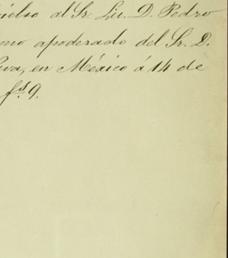 al Sr. Lic. D. Pedro
mo apoderado del Sr. D.
en México á 14 de
fs. 9.